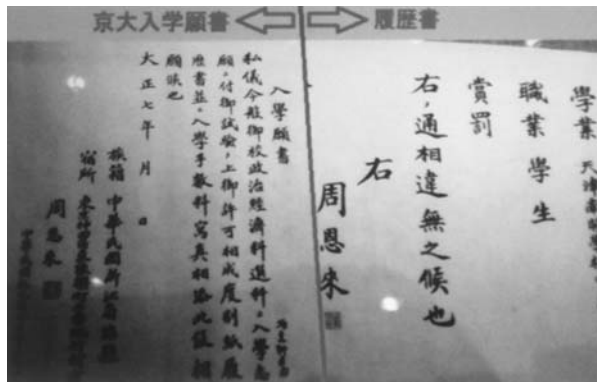 京大入学願書
履歴書
学業 天津南開学校
職業 学生
賞罰
右ノ通相違無之候也
右
周恩来
入学願書
私儀今般御校政治経済科選科ヘ入学志
願ニ付御試験ノ上御許可相成度別紙履
歴書並ニ入学手数料写真相添此段相
願候也
大正七年 月 日
族籍 中華民国浙江省
宿所 東京
周恩来